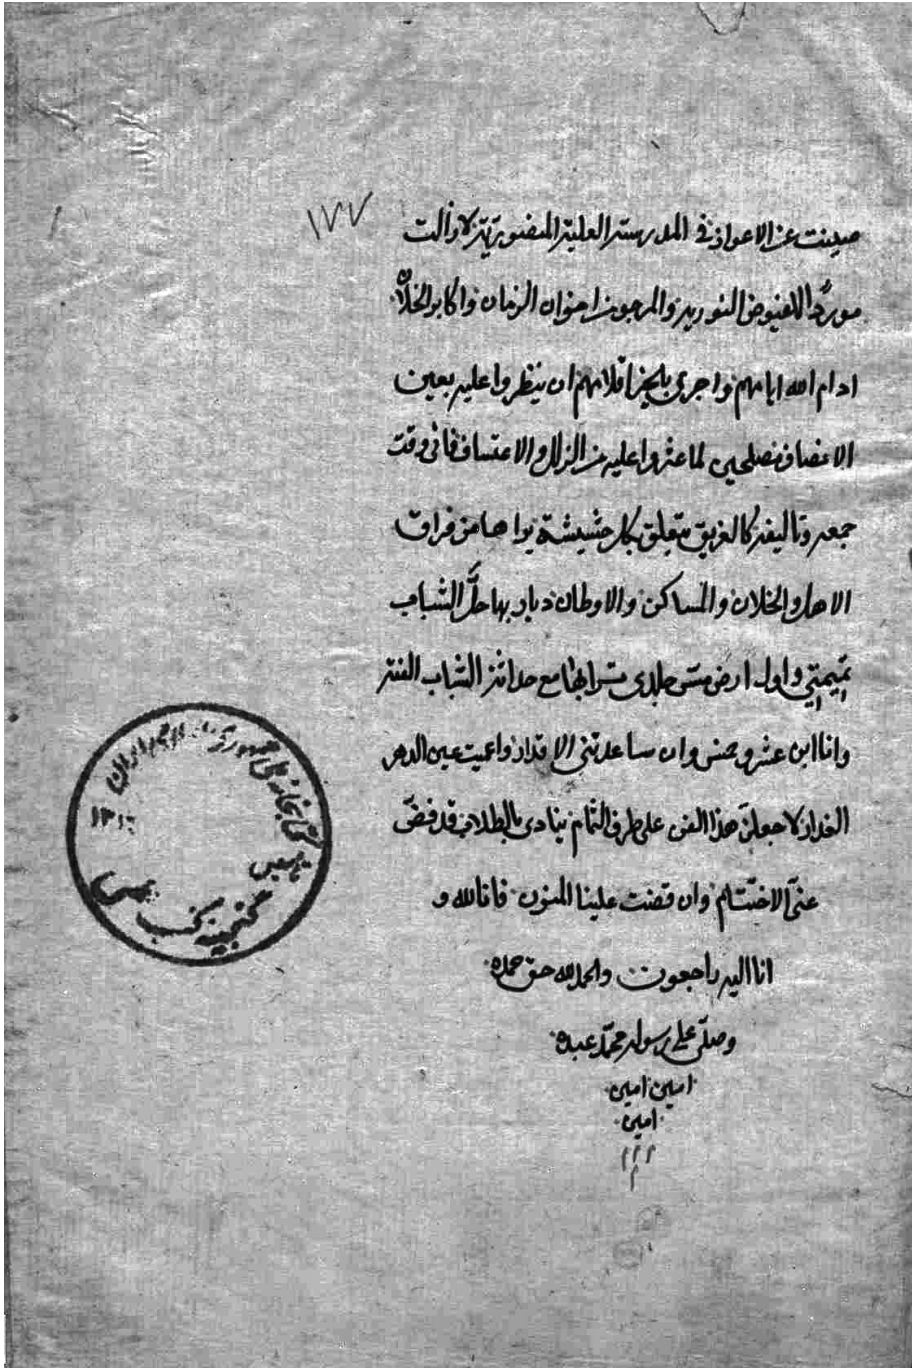 ١٧٧
صينت عن الاعواذ في المدرسة العلية المنصورية لا زالت
موردًا للفيوض النورية والمرجو من اخوان الزمان واكابر الخلان
ادام الله ايامهم واجرى بالخير اقلامهم ان ينظروا عليه بعين
الانصاف مصلحين لما عثروا عليه من الزلل والاعتساف فانى وقت
جمعه وتاليفه كالغريق متعلق بكل حشيشة يواها من فراق
الاهل والخلان والمساكن والاوطان ديار بها حلَّ الشباب
تميمتي واول ارض مسّ جلدى ترابها مع حداثة الشباب
وانا ابن عشر وخمس وان ساعدتنى الاقدار واعميت عين الدهر
الغدار لاجعلنّ هذا الفن على طرف الثمام ينادى بالطلاب قد فضّ
عنّى الاختتام وان قضت علينا المنون فانا لله و
انا اليه راجعون والحمد لله حق حمده
وصلّى على رسوله محمّد عبده
امين امين
امين
م م م
م
كتابخانه ملى جمهورى اسلامى ايران
گنجينه كتب خطى